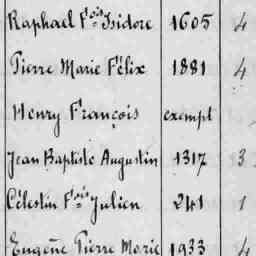 Raphael Fois Isidore 1605 4
Pierre Marie Félix 1881 4
Henry François exempt
Jean Baptiste Augustin 1317 3
Célestin Fois Julien 241 1
Eugène Pierre Marie 1933 4